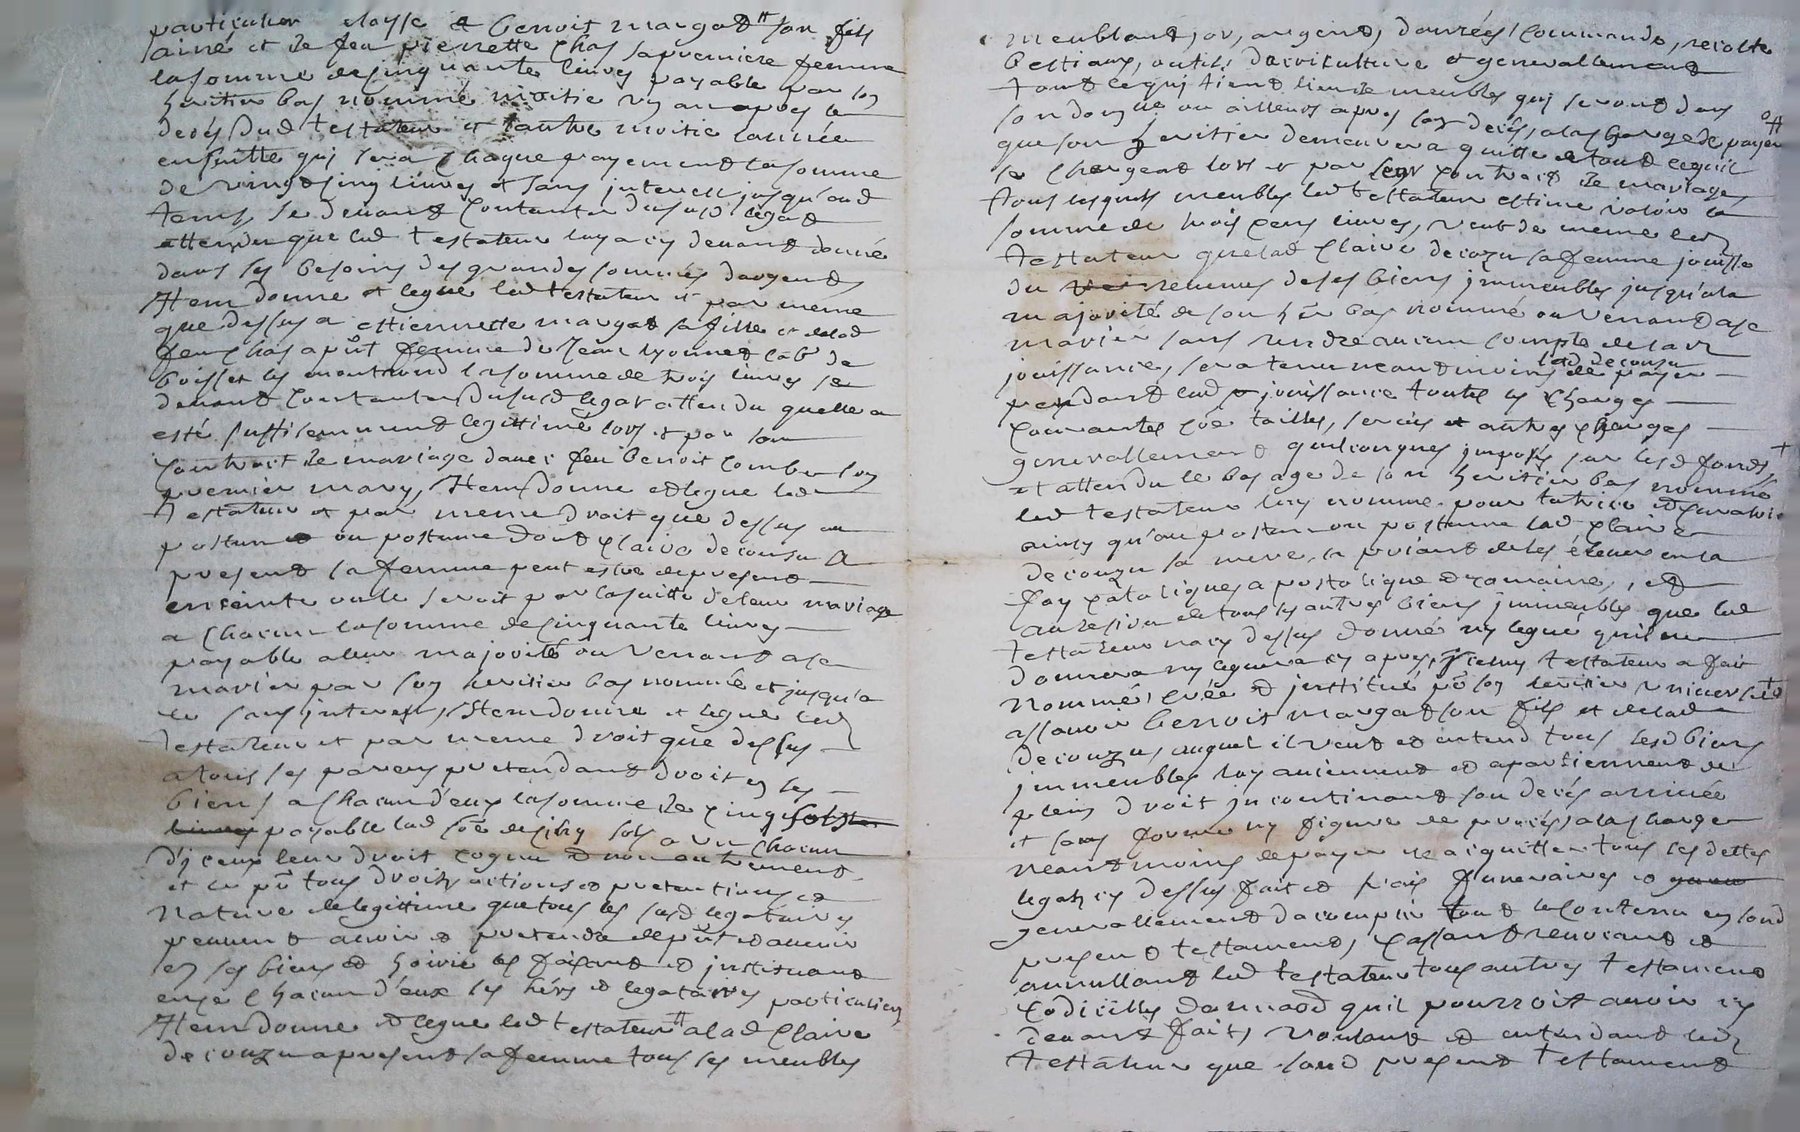 particulier elaysse a benoit margot # son fils
ainé et de feu pierrette Chas sa premiere femme
la somme de cinquante livres payable par son
heritier bas nommé moitie un an apres le
deces dud testateur et lautre moitie lannée
ensuitte qui sera a chaque payement la somme
de vingt cinq livres et sans interest jusquaud
temps se devant contanter dusud legat
attendu que led testateur luy a cy devant donné
dans ses besoins des grandes sommes dargent
Item donne et legue led testateur et par meme
que dessus a ettiennette margat sa fille et delad
feu Chas a pnt femme de Jean lyonnet lab de
la somme de trois livres se
devant contanter dusud legat attendu quelle a
esté suffisemment legittimé lors et par son
contract de mariage avec feu benoit combe son
premier mary, Item donne et legue led
testateur et par meme droit que dessus au
postume ou postume dont claire decouzu a
present sa femme peut estre de present
enceinte ou le seroit par la suitte de leur mariage
a chacun la somme de cinquante livres
payable a leur majorité ou venant a se
marier par son heritier bas nommé et jusqua
ce sans interest, Item donne et legue led
testateur et par meme droit que dessus
a tous ses parens pretendant droit en ses
biens a chacun deux la somme de cinq sols
livres payable lad soe de cinq sols a un chacun
diceux leur droit cogneu et non autrement
et ce po tous droits actions et pretentions et
nature de legittime que tous les susd legataires
peuvent avoir et pretendre de pnt et avenir
en ses biens et hoirie les faisant et instituant
en ce chacun deux ses hers et legataires particuliers
Item donne et legue led testateur # a lad Claire
decouzu a present sa femme tous ses meubles
meublant, or, argent, danrées, Commande, recolte
bestiaux, outils dagriculture et generallement
tout ce qui tient lieu de meubles qui seront dans
son domne ou ailleurs apres son deces, a la charge de payer
que son heritier demeurera quitte de tout ce quil
se chargeat lors et par son contract de mariage
tous lesquels meubles led testateur estime valoir la
somme de trois cens livres, veut de meme led
testateur que lad Claire decouzu sa femme jouisse
du revenus de ses biens immeubles jusqua la
majorité de son her bas nommé ou venant a se
marier sans rendre aucun compte de lad
jouissance, sera tenu neantmoins lad decouzu de payer
pendant lad jouissance toutes les charges
courantes coe tailles, servis et autres charges
generallement quelconques imposes sur lesd fonds +
et attendu le bas age de son heritier bas nommé
led testateur luy nomme pour tutrice et curatrice
ainsy quau postume ou postume lad claire
decouzu sa mere, la priant de les elever en la
foy catolique apostolique et romaine, et
au residu de tous ses autres biens immeubles que led
testateur na cy dessus donné ny legué quil ne
donnera ny leguera cy apres, Iceluy testateur a fait
nommé, créé et institué po son heritier universel
assavoir benoit margat son fils et delad
decouzu, auquel il veut et entend tous lesd biens
immeubles luy aviennent et apartiennent de
plein droit incontinent son deces arrivée
et sans forme ny figure de proces, a la charge
neantmoins de payer et aquitter tous ses dettes
legats cy dessus fait et frais funeraires et
generallement dacomplir tout le contenu en soud
present testament, Cassant revocant et
annullant led testateur tous autres testament
Codicilles donnaon quil pourroit avoir cy
devant fait, voulant et entendant led
testateur que soud present testament